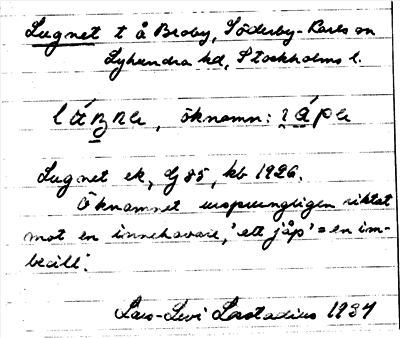 Lugnet t å Broby, Söderby-Karls sn
Lyhundra hd, Stockholms l.
öknamn:
Lugnet ek, G 85, kb 1926.
Öknamnet ursprungligen riktat
mot en innehavare, 'ett jåp' = en im-
becill.
Lars-Levi Læstadius 1934